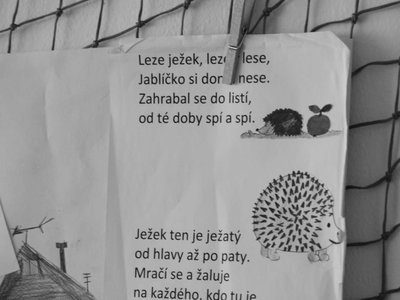 Leze ježek, leze lese,
Jablíčko si donese.
Zahrabal se do listí,
od té doby spí a spí.
Ježek ten je ježatý
od hlavy až po paty.
Mračí se a žaluje
na každého, kdo tu je